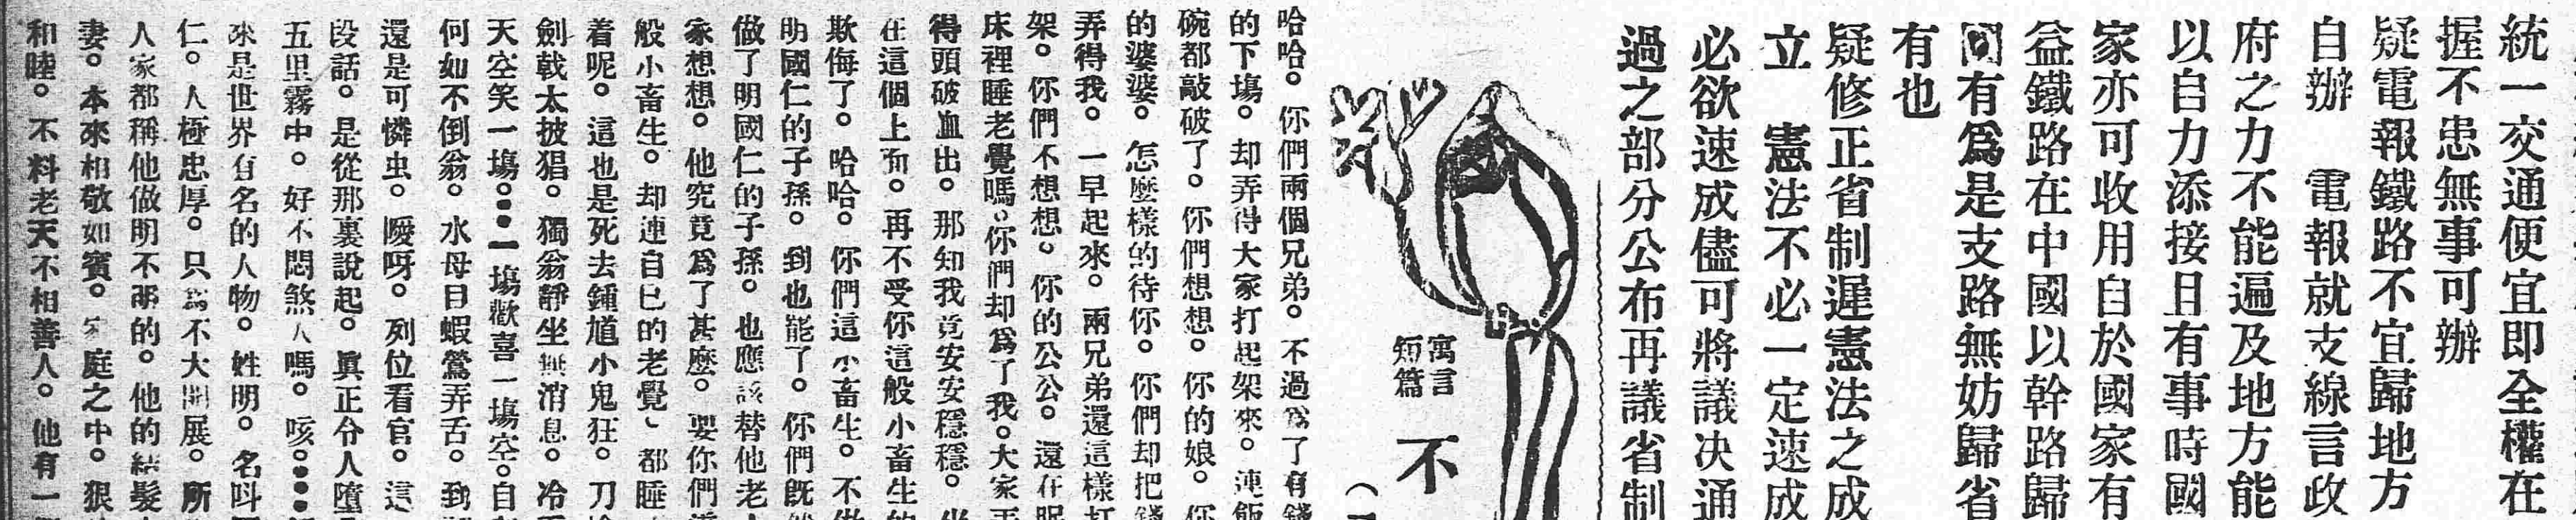 統一交通便宜即全權在
握不患無事可辦
疑電報鐵路不宜歸地方
自辦　電報就支線言政
府之力不能遍及地方能
以自力添接且有事時國
家亦可收用自於國家有
益鐵路在中國以幹路歸
國有爲是支路無妨歸省
有也
疑修正省制遲憲法之成
立　憲法不必一定速成
必欲速成儘可將議决通
過之部分公布再議省制
寓言
短篇
不
哈哈。你們兩個兄弟。不過爲了有錢
的下塲。却弄得大家打起架來。連飯
碗都敲破了。你們想想。你的娘。你
的婆婆。怎麼樣的待你。你們却把錢
弄得我。一早起來。兩兄弟還這樣打
架。你們不想想。你的公公。還在眠
床裡睡老覺嗎。你們却爲了我。大家
得頭破血出。那知我竟安安穩穩。坐
在這個上面。再不受你這般小畜生的
欺侮了。哈哈。你們這小畜生。不做
明國仁的子孫。到也罷了。你們旣然
做了明國仁的子孫。也應該替他老人
家想想。他究竟爲了甚麼。要你們
般小畜生。却連自己的老覺、都睡
着呢。這也是死去鍾馗小鬼狂。刀槍
劍戟太披猖。獨翁靜坐無消息。冷
天空笑一塲●●●一塲歡喜一塲空。自
何如不倒翁。水母目蝦鶯弄舌。到
還是可憐虫。噯呀。列位看官。這
段話。是從那裏說起。眞正令人墮
五里霧中。好不悶煞人嗎。咳●●●
來是世界有名的人物。姓明。名呌
仁。人極忠厚。只爲不大開展。所
人家都稱他做明不明的。他的結髮
妻。本來相敬如賓。家庭之中。狠
和睦。不料老天不相善人。他有一